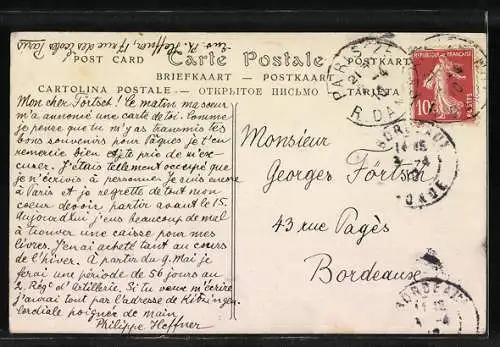 Env. Ph. Heffner, 17 rue des Ecoles Paris
POST CARD
Carte Postale
POSTKARTE
BRIEFKAART — POSTKAART
CARTOLINA POSTALE — ОТКРЫТОЕ ПИСЬМО
TARJETA
REPUBLIQUE FRANÇAISE
10
POSTES
PARIS
R. DAN
BORDEAUX
GIRONDE
Mon cher Förtsch! Ce matin ma sœur
m'a annoncé une carte de toi. Comme
je pense que tu m'y as transmis tes
bons souvenirs pour Pâques je t'en
remercie bien. Et te prie de m'ex-
cuser. J'étais tellement occupé que
je n'écrivis à personne. Je suis encore
à Paris et je regrette de tout mon
cœur devoir partir avant le 15.
Aujourd'hui j'eus beaucoup de mal
à trouver une caisse pour mes
livres. J'en ai acheté tant au cours
de l'hiver. A partir du 9. Mai je
ferai un période de 56 jours au
2. Régt d'Artillerie. Si tu veux m'écrire
j'aurai tout par l'adresse de Kitzingen
Cordiale poignée de main
Philippe Heffner
Monsieur
Georges Förtsch
43 rue Pagès
Bordeaux
BORDEAUX